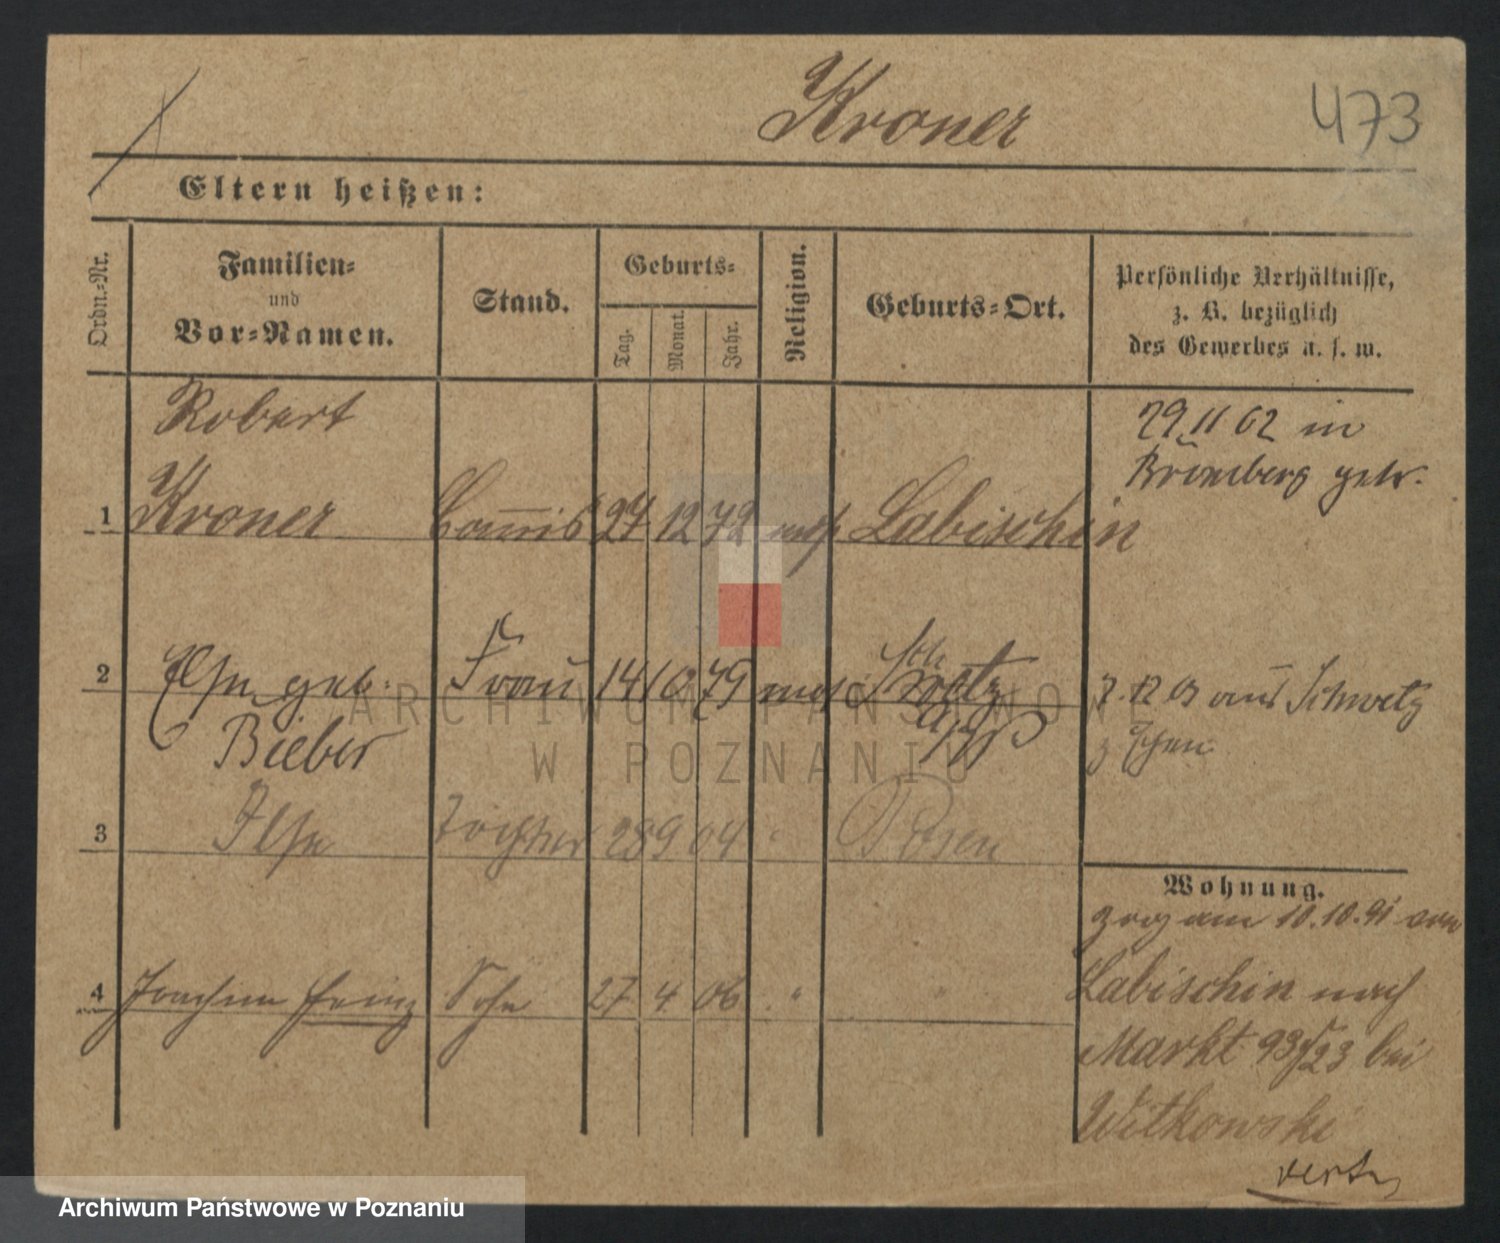 Kroner
473
Eltern heißen:
Ordn.-Nr.
Familien-
und
Vor-Namen.
Stand.
Geburts-
Tag.
Monat.
Jahr.
Religion.
Geburts-Ort.
Persönliche Verhältnisse,
z. B. bezüglich
des Gewerbes u. s. w.
Robert
29 11 02 in
Bromberg getr.
1 Kroner Commis 27 12 72 mos Labischin
2 Else geb. Frau 14 10 79 mos Schwetz
Bieber
12 03 aus Schwetz
3 Ilse Tochter 28 9 04 " Posen
4 Joachim Heinz Sohn 27 4 06 " "
Wohnung.
zog am 10.10.91 von
Labischin nach
Markt 93/ 23 bei
Witkowski
ARCHIWUM PAŃSTWOWE
W POZNANIU
Archiwum Państwowe w Poznaniu